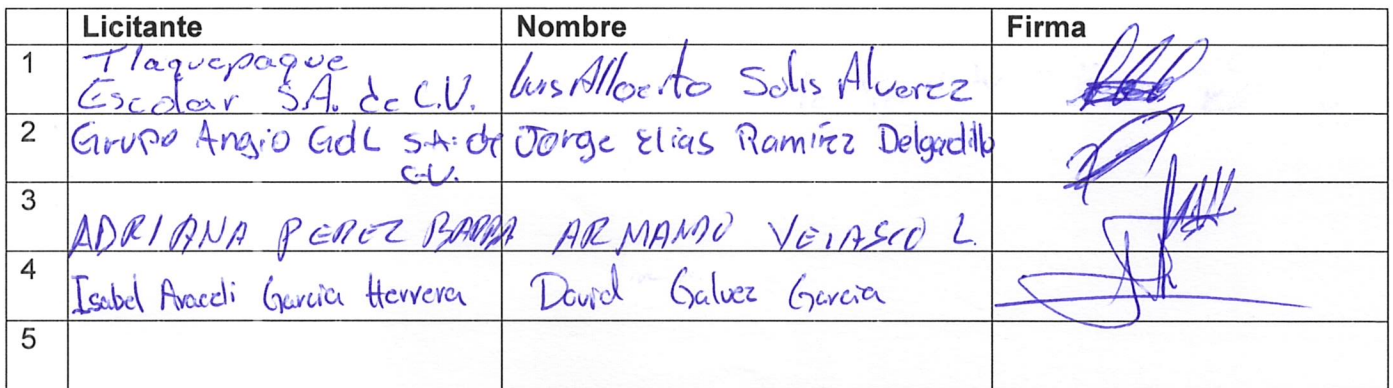 Licitante Nombre Firma
1 Tlaquepaque
Escolar S.A. de C.V. Luis Alberto Solis Alvarez
2 Grupo Angio GdL S.A. de Jorge Elias Ramírez Delgadillo
C.V.
3
ADRIANA PEREZ BARBA ARMANDO VELASCO L.
4 Isabel Araceli Garcia Herrera David Galvez Garcia
5